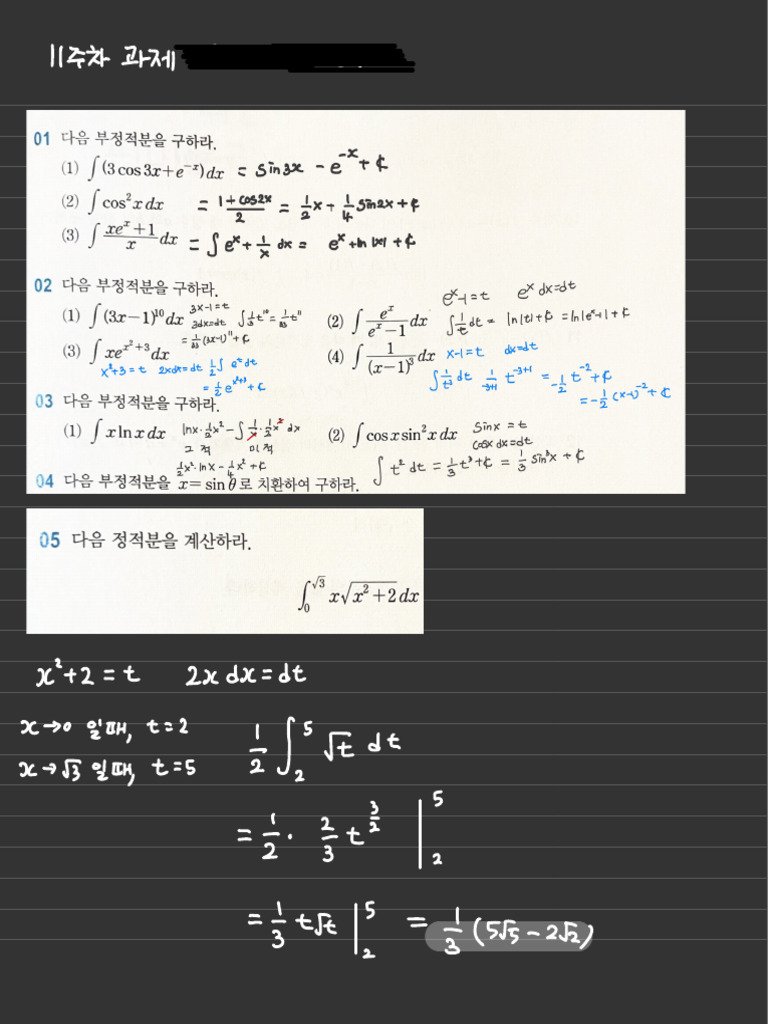 11주차 과제
01 다음 부정적분을 구하라.
(1) ∫(3cos3x+e^{-x})dx = sin3x - e^{-x} + C
(2) ∫cos²x dx = \frac{1+cos2x}{2} = \frac{1}{2}x + \frac{1}{4}sin2x + C
(3) ∫\frac{xe^x+1}{x}dx = ∫e^x + \frac{1}{x} dx = e^x + ln|x| + C
02 다음 부정적분을 구하라.
(1) ∫(3x-1)^{10}dx 3x-1=t 3dx=dt ∫\frac{1}{3}t^{10} = \frac{1}{33}t^{11}
= \frac{1}{33}(3x-1)^{11}+C
(2) ∫\frac{e^x}{e^x-1}dx e^x-1=t e^x dx=dt
∫\frac{1}{t}dt = ln|t|+C = ln|e^x-1|+C
(3) ∫xe^{x²+3}dx
x²+3=t 2xdx=dt \frac{1}{2}∫e^t dt
= \frac{1}{2}e^{x²+3}+C
(4) ∫\frac{1}{(x-1)³}dx x-1=t dx=dt
∫\frac{1}{t³}dt \frac{1}{-3+1}t^{-3+1} = -\frac{1}{2}t^{-2}+C
= -\frac{1}{2}(x-1)^{-2}+C
03 다음 부정적분을 구하라.
(1) ∫x ln x dx lnx·\frac{1}{2}x² - ∫\frac{1}{x}·\frac{1}{2}x² dx
그 적 미 적
\frac{1}{2}x²·lnx - \frac{1}{4}x²+C
(2) ∫cos x sin²x dx sinx=t
cosx dx=dt
∫t² dt = \frac{1}{3}t³+C = \frac{1}{3}sin³x+C
04 다음 부정적분을 x=sinθ로 치환하여 구하라.
05 다음 정적분을 계산하라.
∫_0^{√3} x√(x²+2)dx
x²+2=t 2x dx=dt
x→0 일때, t=2
x→√3 일때, t=5
\frac{1}{2}∫_2^5 √t dt
= \frac{1}{2}·\frac{2}{3}t^{\frac{3}{2}} |_2^5
= \frac{1}{3}t√t |_2^5 = \frac{1}{3}(5√5-2√2)